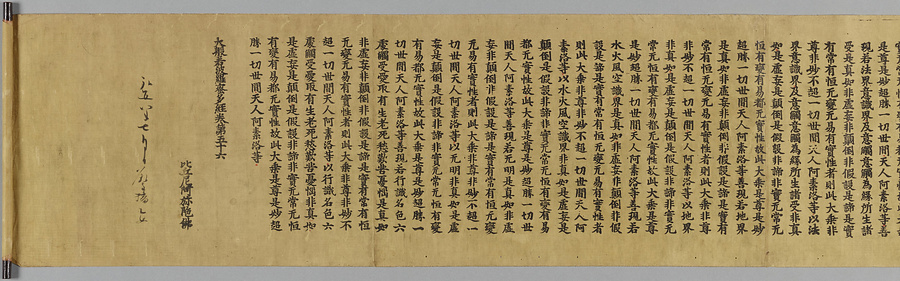 是尊是妙超勝一切世間天人阿素洛等善
現若法界意識界及意觸意觸為緣所生諸
受是真如非虛妄非顛倒非假設是諦是實
有常有恒无變无易有實性者則此大乘非
尊非妙不超一切世間天人阿素洛等以法
界意識界及意觸意觸為緣所生諸受非真
如是虛妄是顛倒是假設非諦非實无常无
恒有變有易都无實性故此大乘是尊是妙
超勝一切世間天人阿素洛等善現若地界
是真如非虛妄非顛倒非假設是諦是實有
常有恒无變无易有實性者則此大乘非尊
非妙不超一切世間天人阿素洛等以地界
非真如是虛妄是顛倒是假設非諦非實无
常无恒有變有易都无實性故此大乘是尊
是妙超勝一切世間天人阿素洛等善現若
水火風空識界是真如非虛妄非顛倒非假
設是諦是實有常有恒无變无易有實性者
則此大乘非尊非妙不超一切世間天人阿
素洛等以水火風空識界非真如是虛妄是
顛倒是假設非諦非實无常无恒有變有易
都无實性故此大乘是尊是妙超勝一切世
間天人阿素洛等善現若无明是真如非虛
妄非顛倒非假設是諦是實有常有恒无變
无易有實性者則此大乘非尊非妙不超一
切世間天人阿素洛等以无明非真如是虛
妄是顛倒是假設非諦非實无常无恒有變
有易都无實性故此大乘是尊是妙超勝一
切世間天人阿素洛等善現若行識名色六
處觸受愛取有生老死愁歎苦憂惱是真如
非虛妄非顛倒非假設是諦是實有常有恒
无變无易有實性者則此大乘非尊非妙不
超一切世間天人阿素洛等以行識名色六
處觸受愛取有生老死愁歎苦憂惱非真如
是虛妄是顛倒是假設非諦非實无常无恒
有變有易都无實性故此大乘是尊是妙超
勝一切世間天人阿素洛等
大般若波羅蜜多經卷第五十六